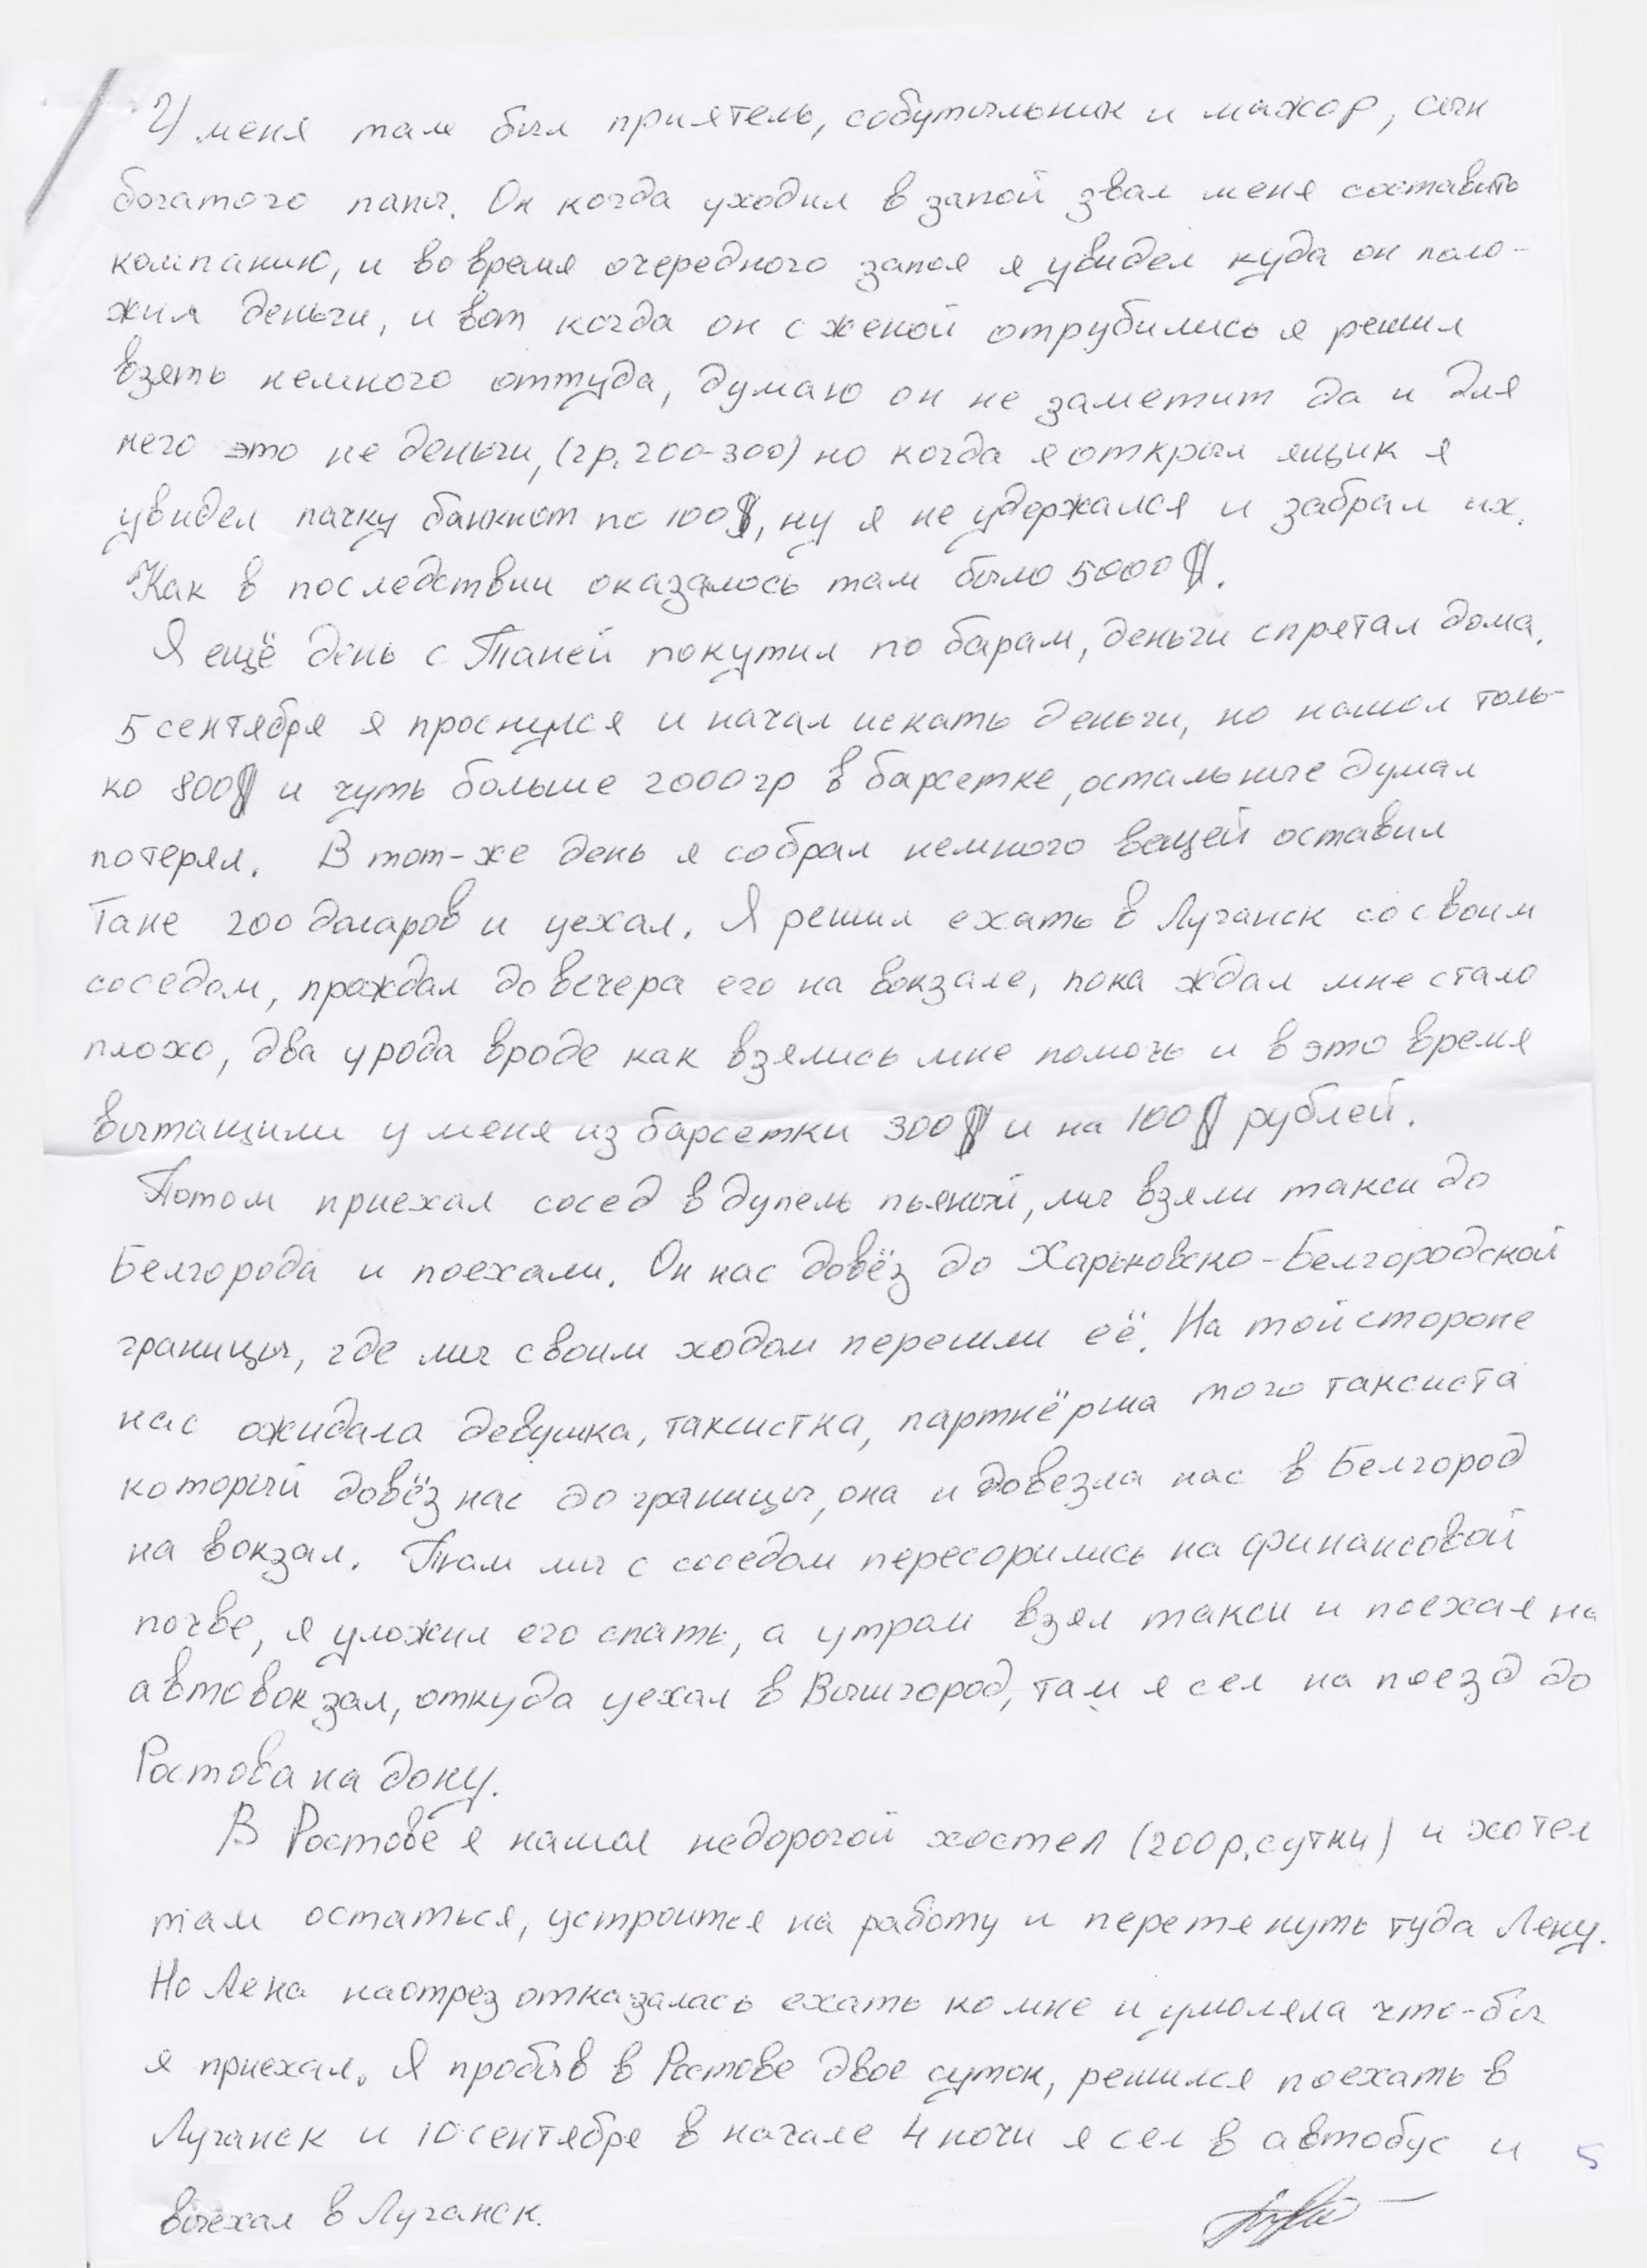 У меня там был приятель, собутыльник и мажор, сын
богатого папы. Он когда уходил в запой звал меня составить
компанию, и во время очередного запоя я увидел куда он поло-
жил деньги, и вот когда он с женой отрубились я решил
взять немного оттуда, думаю он не заметит да и для
него это не деньги, (гр. 200-300) но когда я открыл ящик я
увидел пачку банкнот по 100$, ну я не удержался и забрал их.
Как в последствии оказалось там было 5000$.
Я ещё день с Таней покутил по барам, деньги спрятал дома.
5 сентября я проснулся и начал искать деньги, но нашол толь-
ко 800$ и чуть больше 2000гр в барсетке, остальные думал
потерял. В тот-же день я собрал немного вещей оставил
Тане 200 доларов и уехал. Я решил ехать в Луганск со своим
соседом, прождал до вечера его на вокзале, пока ждал мне стало
плохо, два урода вроде как взялись мне помочь и в это время
вытащили у меня из барсетки 300$ и на 100$ рублей.
Потом приехал сосед в дупель пьяный, мы взяли такси до
Белгорода и поехали. Он нас довёз до Харьковско-Белгородской
границы, где мы своим ходом перешли её. На той стороне
нас ожидала девушка, таксистка, партнёрша того таксиста
который довёз нас до границы, она и довезла нас в Белгород
на вокзал. Там мы с соседом пересорились на финансовой
почве, я уложил его спать, а утром взял такси и поехал на
автовокзал, откуда уехал в Вышгород, там я сел на поезд до
Ростова на дону.
В Ростове я нашол недорогой хостел (200р. сутки) и хотел
там остаться, устроится на работу и перетянуть туда Лену.
Но Лена наотрез отказалась ехать ко мне и умоляла что-бы
я приехал. Я пробыв в Ростове двое суток, решился поехать в
Луганск и 10 сентября в начале 4 ночи я сел в автобус и
выехал в Луганск.
5